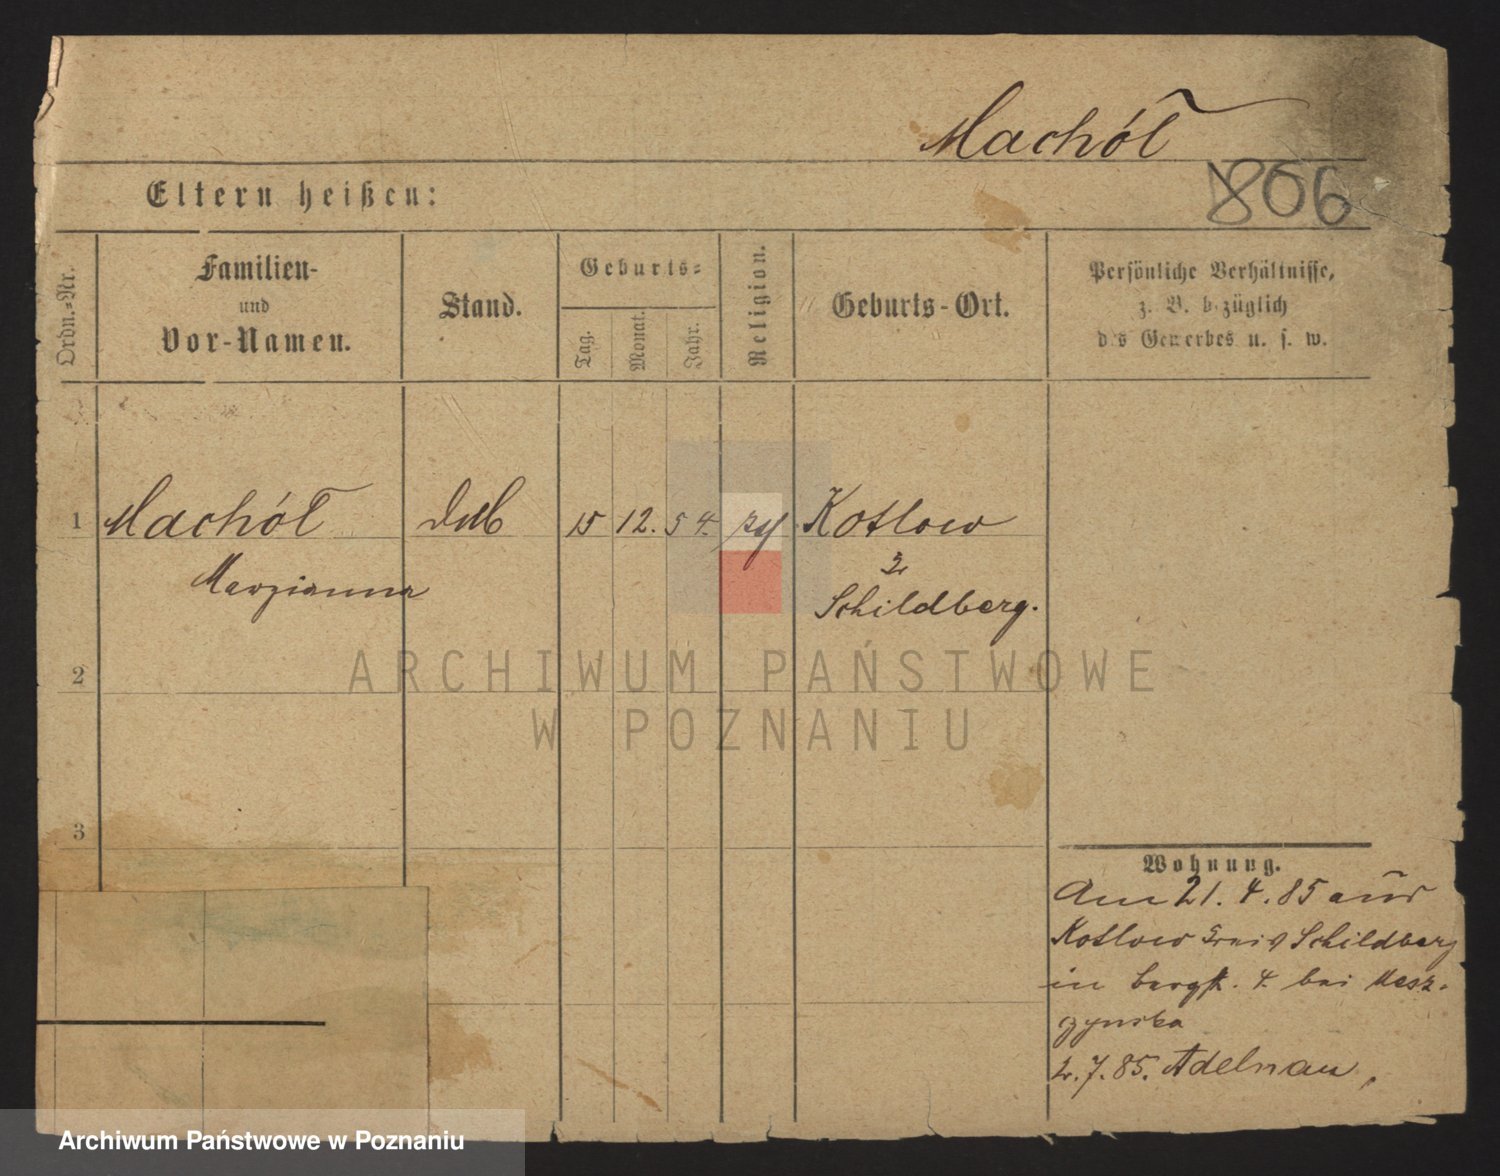 Machół
806
Eltern heißen:
Ordn.-Nr.
Familien-
und
Vor-Namen.
Stand.
Geburts-
Tag.
Monat.
Jahr.
Religion.
Geburts-Ort.
Persönliche Verhältnisse,
z. B. bezüglich
des Gewerbes u. s. w.
1
Machół
15
12.
54.
Kotlow
Marzianna
Schildberg.
ARCHIWUM PAŃSTWOWE
2
W POZNANIU
3
Wohnung.
Am 21. 4. 85 aus
Kotlow Kreis Schildberg
in Bergstr. 4 bei
2. 7. 85. Adelnau
Archiwum Państwowe w Poznaniu